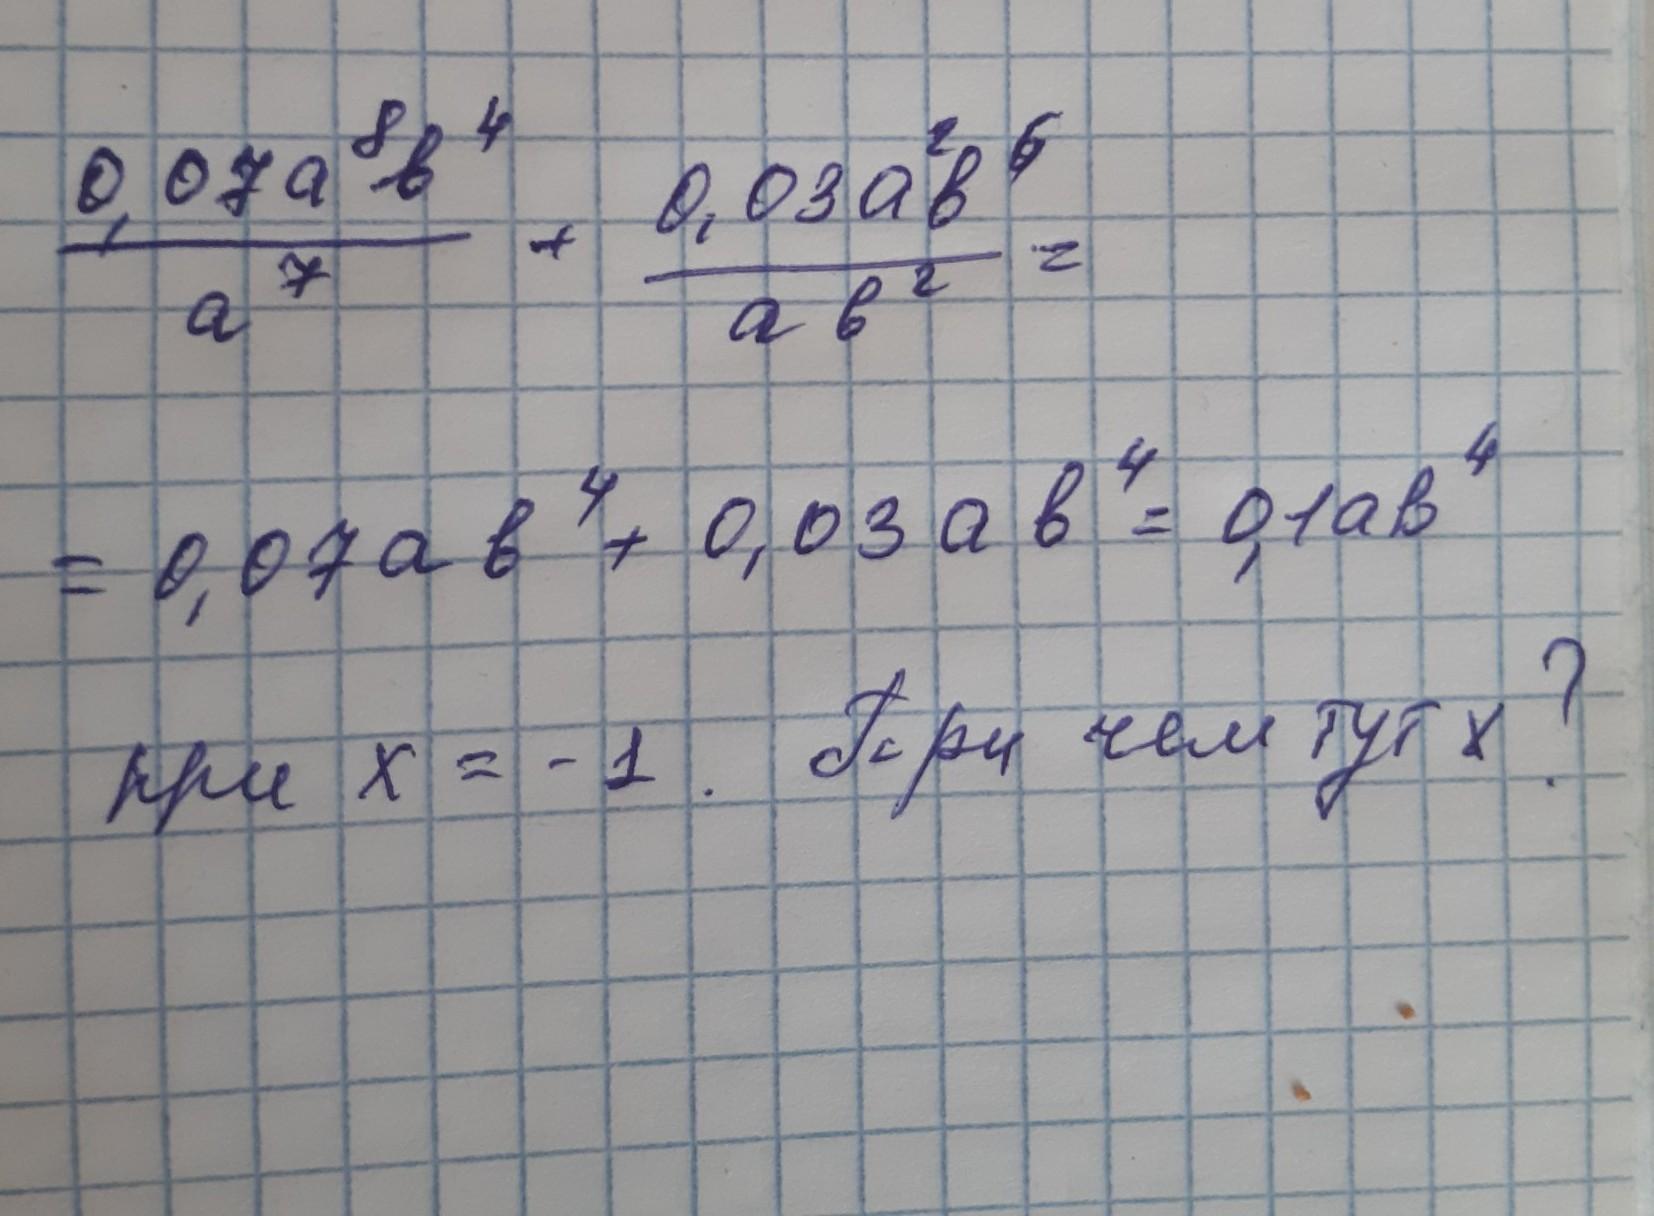 0,07a⁸b⁴/a⁷ + 0,03a²b⁶/ab² =
= 0,07ab⁴ + 0,03ab⁴ = 0,1ab⁴
при x = -1. При чем тут x?